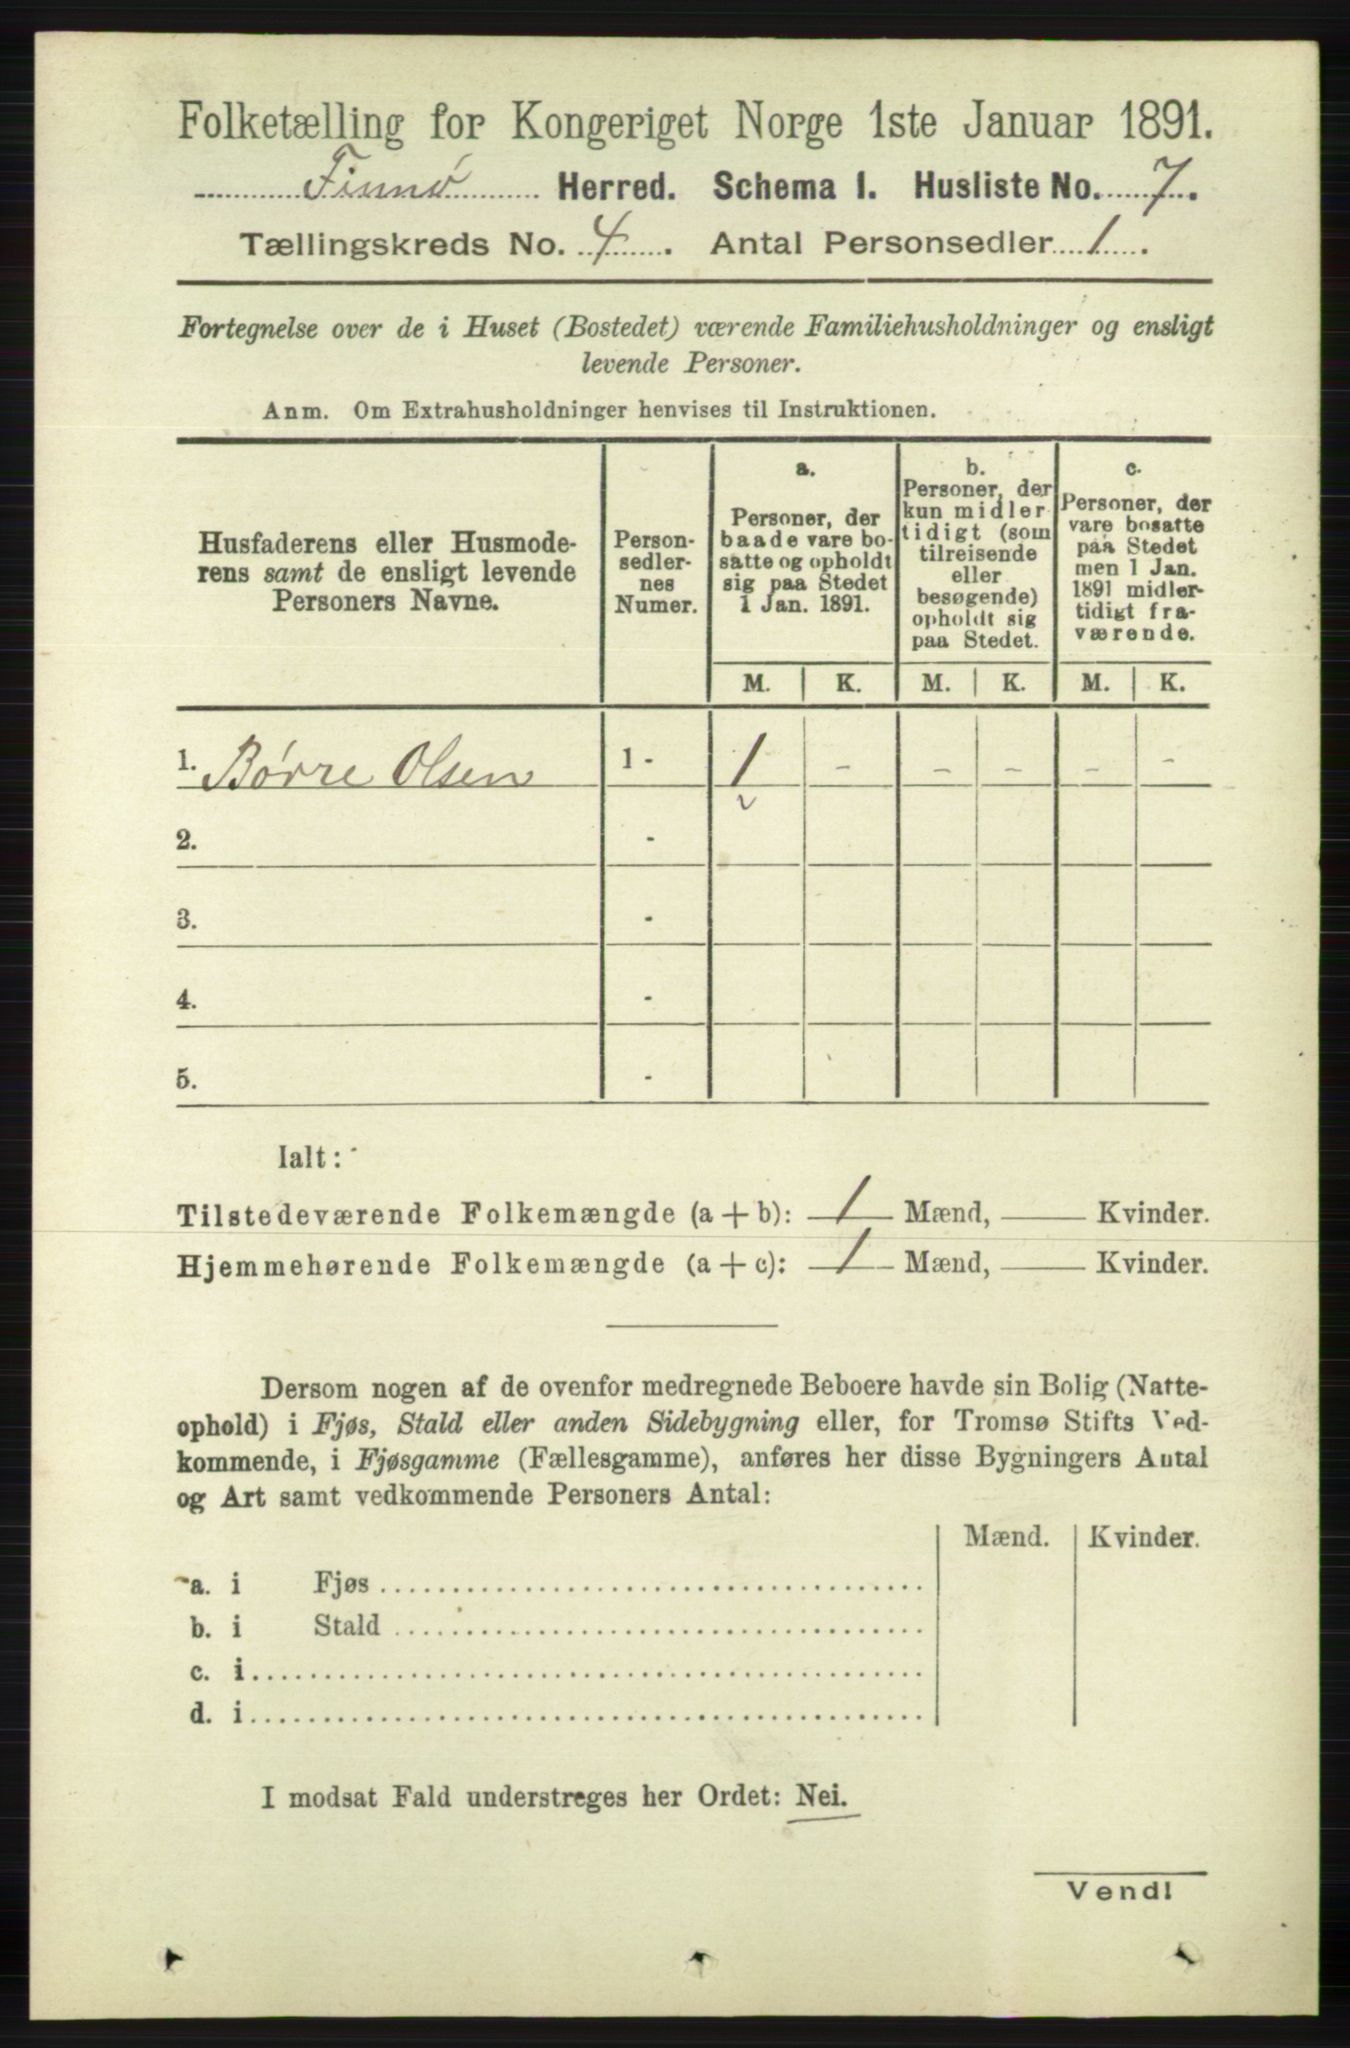 Folketælling for Kongeriget Norge 1ste Januar 1891.
Finnø Herred. Schema I. Husliste No. 7.
Tællingskreds No. 4. Antal Personsedler 1.
Fortegnelse over de i Huset (Bostedet) værende Familiehusholdninger og ensligt
levende Personer.
Anm. Om Extrahusholdninger henvises til Instruktionen.
Husfaderens eller Husmode-
rens samt de ensligt levende
Personers Navne.
Person-
sedler-
nes
Numer.
a.
Personer, der
baade vare bo-
satte og opholdt
sig paa Stedet
1 Jan. 1891.
b.
Personer, der
kun midler
tidigt (som
tilreisende
eller
besøgende)
opholdt sig
paa Stedet.
c.
Personer, der
vare bosatte
paa Stedet
men 1 Jan.
1891 midler-
tidigt fra-
værende.
M. K. M. K. M. K.
1. Børre Olsen 1 - 1 - - - - -
2. -
3. -
4. -
5. -
Ialt:
Tilstedeværende Folkemængde (a + b): 1 Mænd, — Kvinder.
Hjemmehørende Folkemængde (a + c): 1 Mænd, — Kvinder.
Dersom nogen af de ovenfor medregnede Beboere havde sin Bolig (Natte-
ophold) i Fjøs, Stald eller anden Sidebygning eller, for Tromsø Stifts Ved-
kommende, i Fjøsgamme (Fællesgamme), anføres her disse Bygningers Antal
og Art samt vedkommende Personers Antal:
Mænd. Kvinder.
a. i Fjøs
b. i Stald
c. i
d. i
I modsat Fald understreges her Ordet: Nei.
Vend!